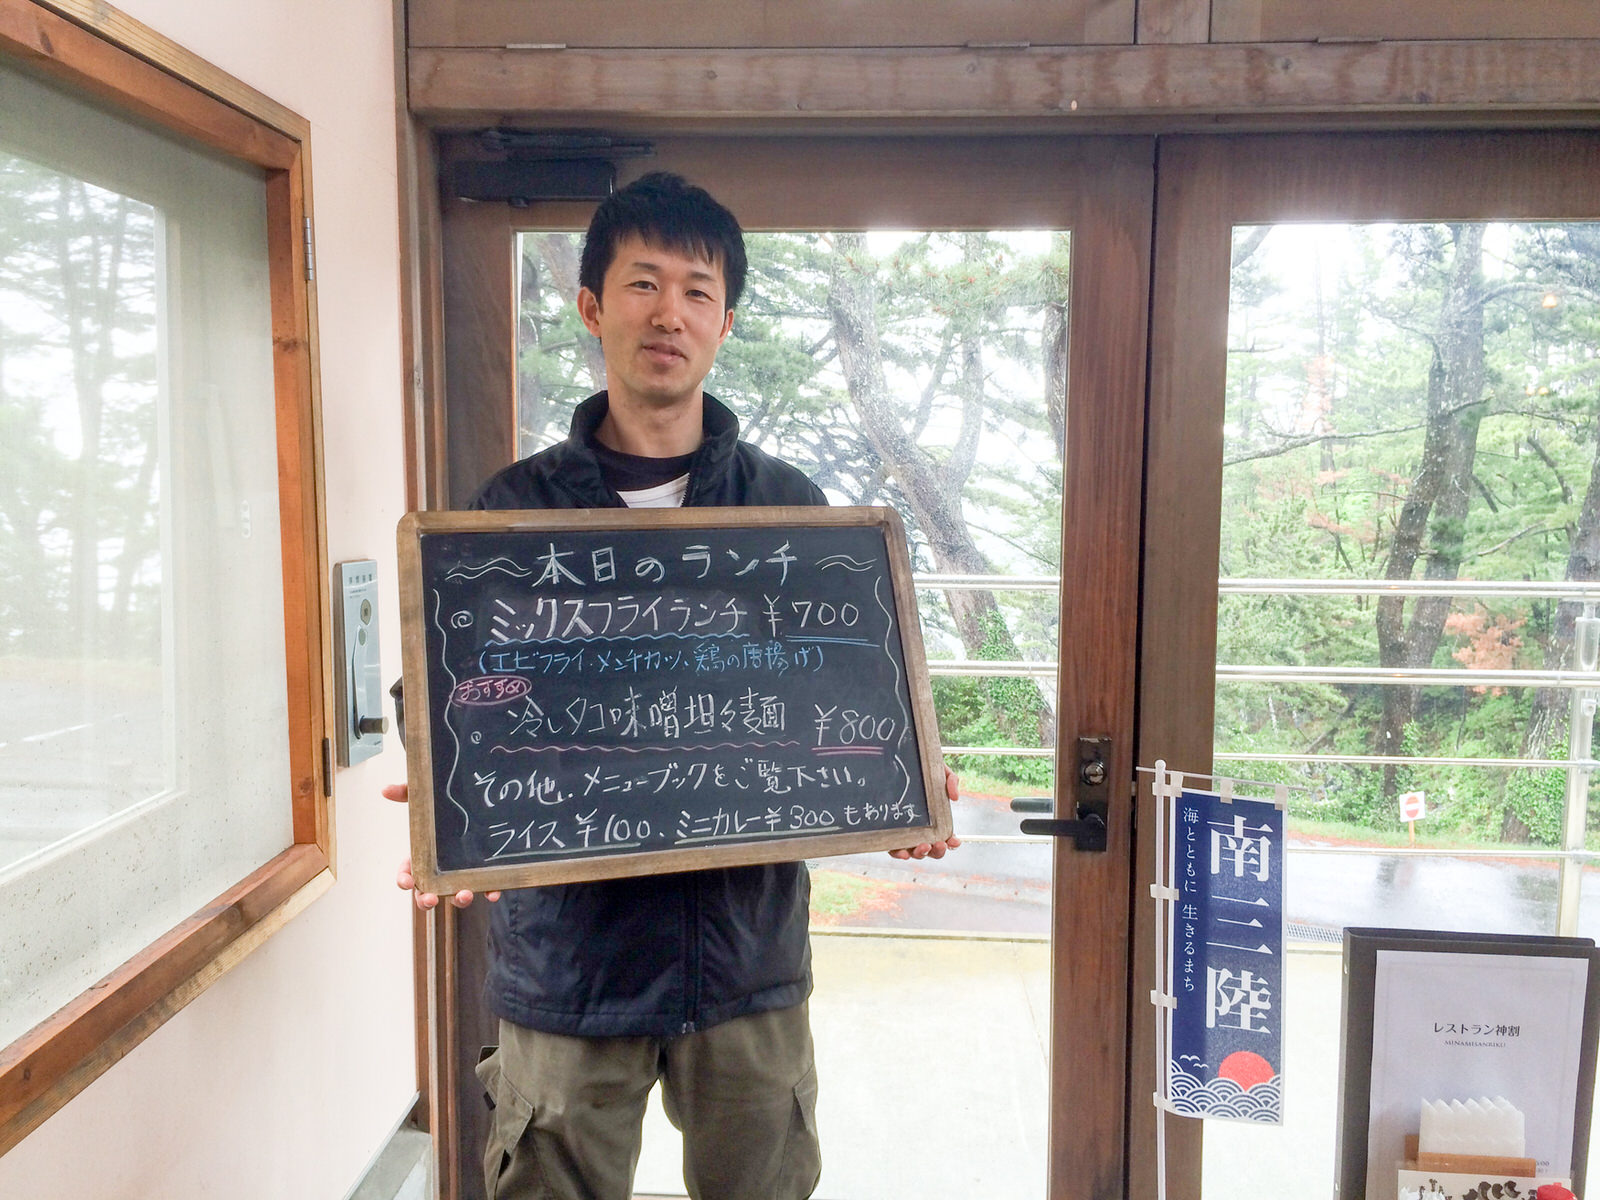 本日のランチ
ミックスフライランチ ¥700
(エビフライ、メンチカツ、鶏の唐揚げ)
おすすめ
冷しタコ味噌坦々麺 ¥800
その他、メニューブックをご覧下さい。
ライス ¥100、ミニカレー¥300もあります
南三陸
海とともに 生きるまち
レストラン神割
MINAMISANRIKU